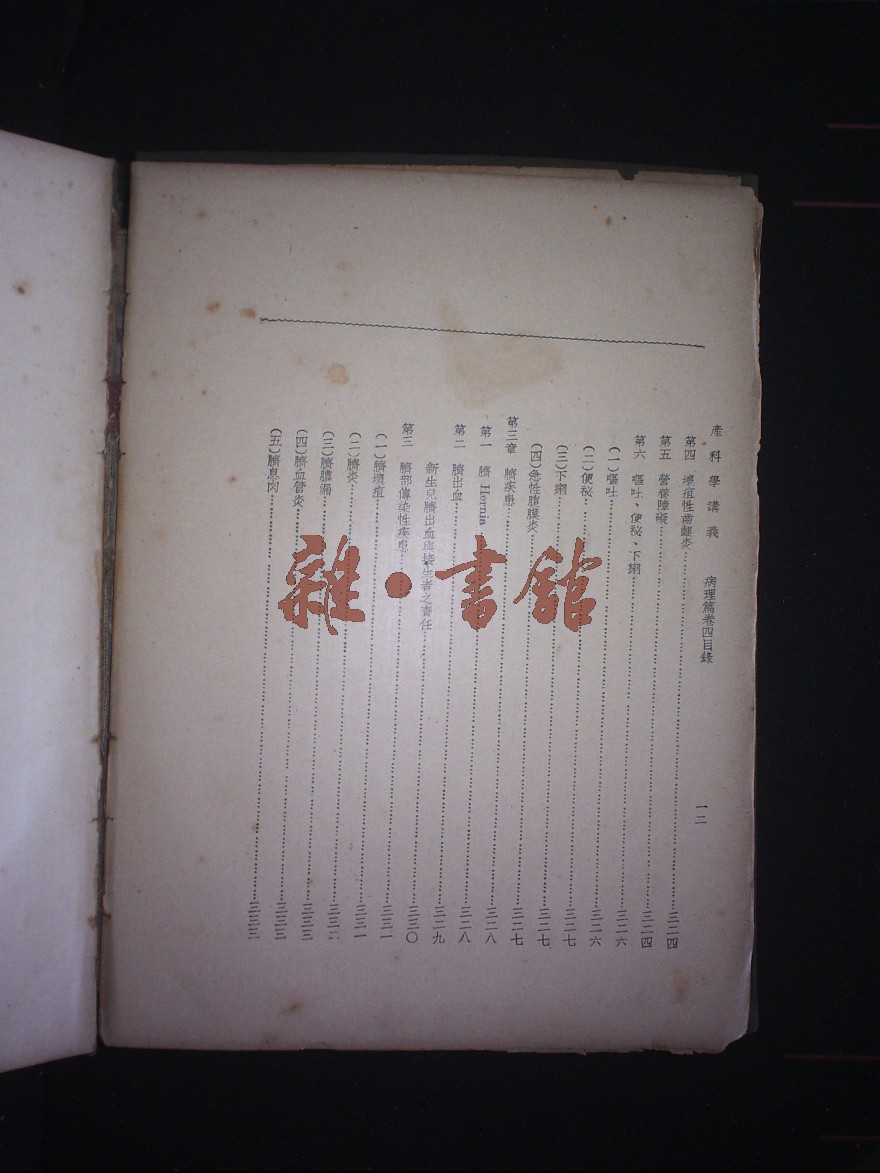 產科學講義 病理篇卷四目錄 一二
第四 壞疽性齒齦炎……三二四
第五 營養障礙……三二四
第六 嘔吐、便秘、下痢……三二六
(一)嘔吐……三二六
(二)便秘……三二七
(三)下痢……三二七
(四)急性腹膜炎……三二七
第三章 臍疾患……三二八
第一 臍 Hernia……三二八
第二 臍出血……三二九
新生兒臍出血與接生者之責任……三三〇
第三 臍部傳染性疾患……三三一
(一)臍壞疽……三三一
(二)臍炎……三三二
(三)臍膿漏……三三三
(四)臍血管炎……三三三
(五)臍息肉……三三三
雜·書館